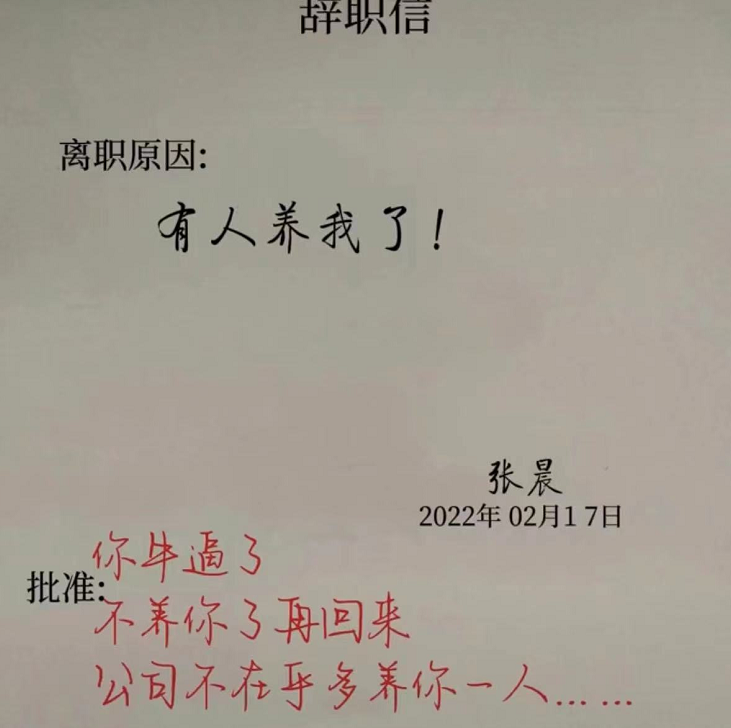 辞职信
离职原因:
有人养我了!
张晨
2022年 02月1 7日
你牛逼了
批准:
不养你了再回来
公司不在乎多养你一人……